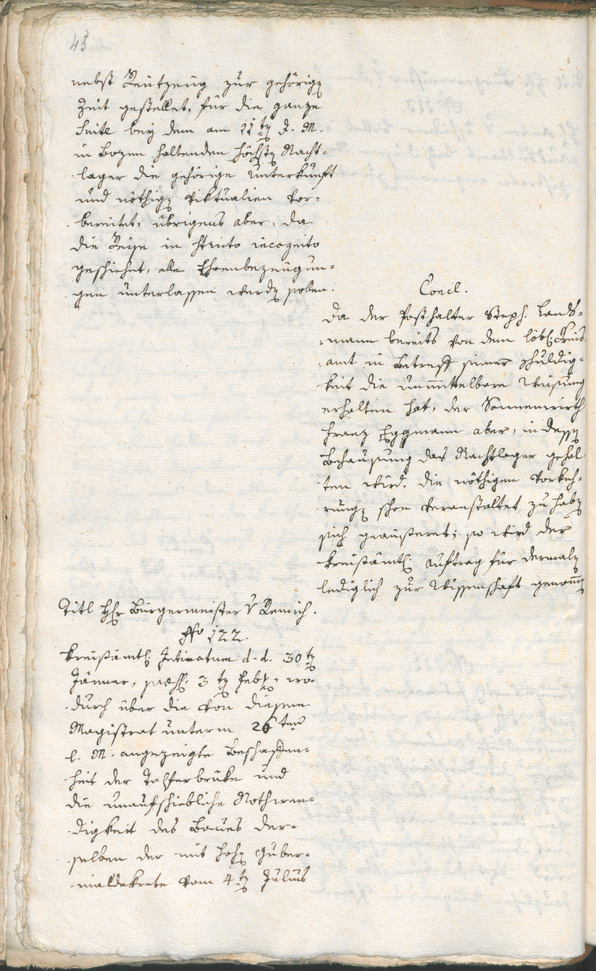 48
nebst Reutzeug zur gehörigen
Zeit gestellet, für die ganze
Suite bey dem am 11ten d. M.
in Bozen haltenden höchsten Nacht-
lager die gehörige Unterkunft
und nöthigen Viktualien vor-
bereitet, übrigens aber, da
die Reise in stricto incognito
geschiehet, alle Ehrenbezeugun-
gen unterlassen werden sollen.
Concl.
Da der Posthalter Steph. Lands-
mann bereits von dem löbl. Kreis-
amt in Betreff seiner Schuldig-
keit die unmittelbare Weisung
erhalten hat, der Sonnenwirth
Franz Eggmann aber, in dessen
Behausung das Nachtlager gehal-
ten wird, die nöthigen Vorkeh-
rungen schon veranstaltet zu haben
sich geäußeret; so wird der
kreisämtl. Auftrag für dermalen
lediglich zur Wissenschaft genommen
Titl Hr. Bürgermeister v Remich.
No 122.
Kreisämtl. Intimatum d. d. 30ten
Jänner, praess. 3ten Febr., wo-
durch über die von diesem
Magistrat unterm 26ten
e. M. angezeigte Beschaffen-
heit der Talferbrüke und
die unaufschiebliche Nothwen-
digkeit des Baues der-
selben der mit hohen Guber-
nialdekrete vom 4ten Julius